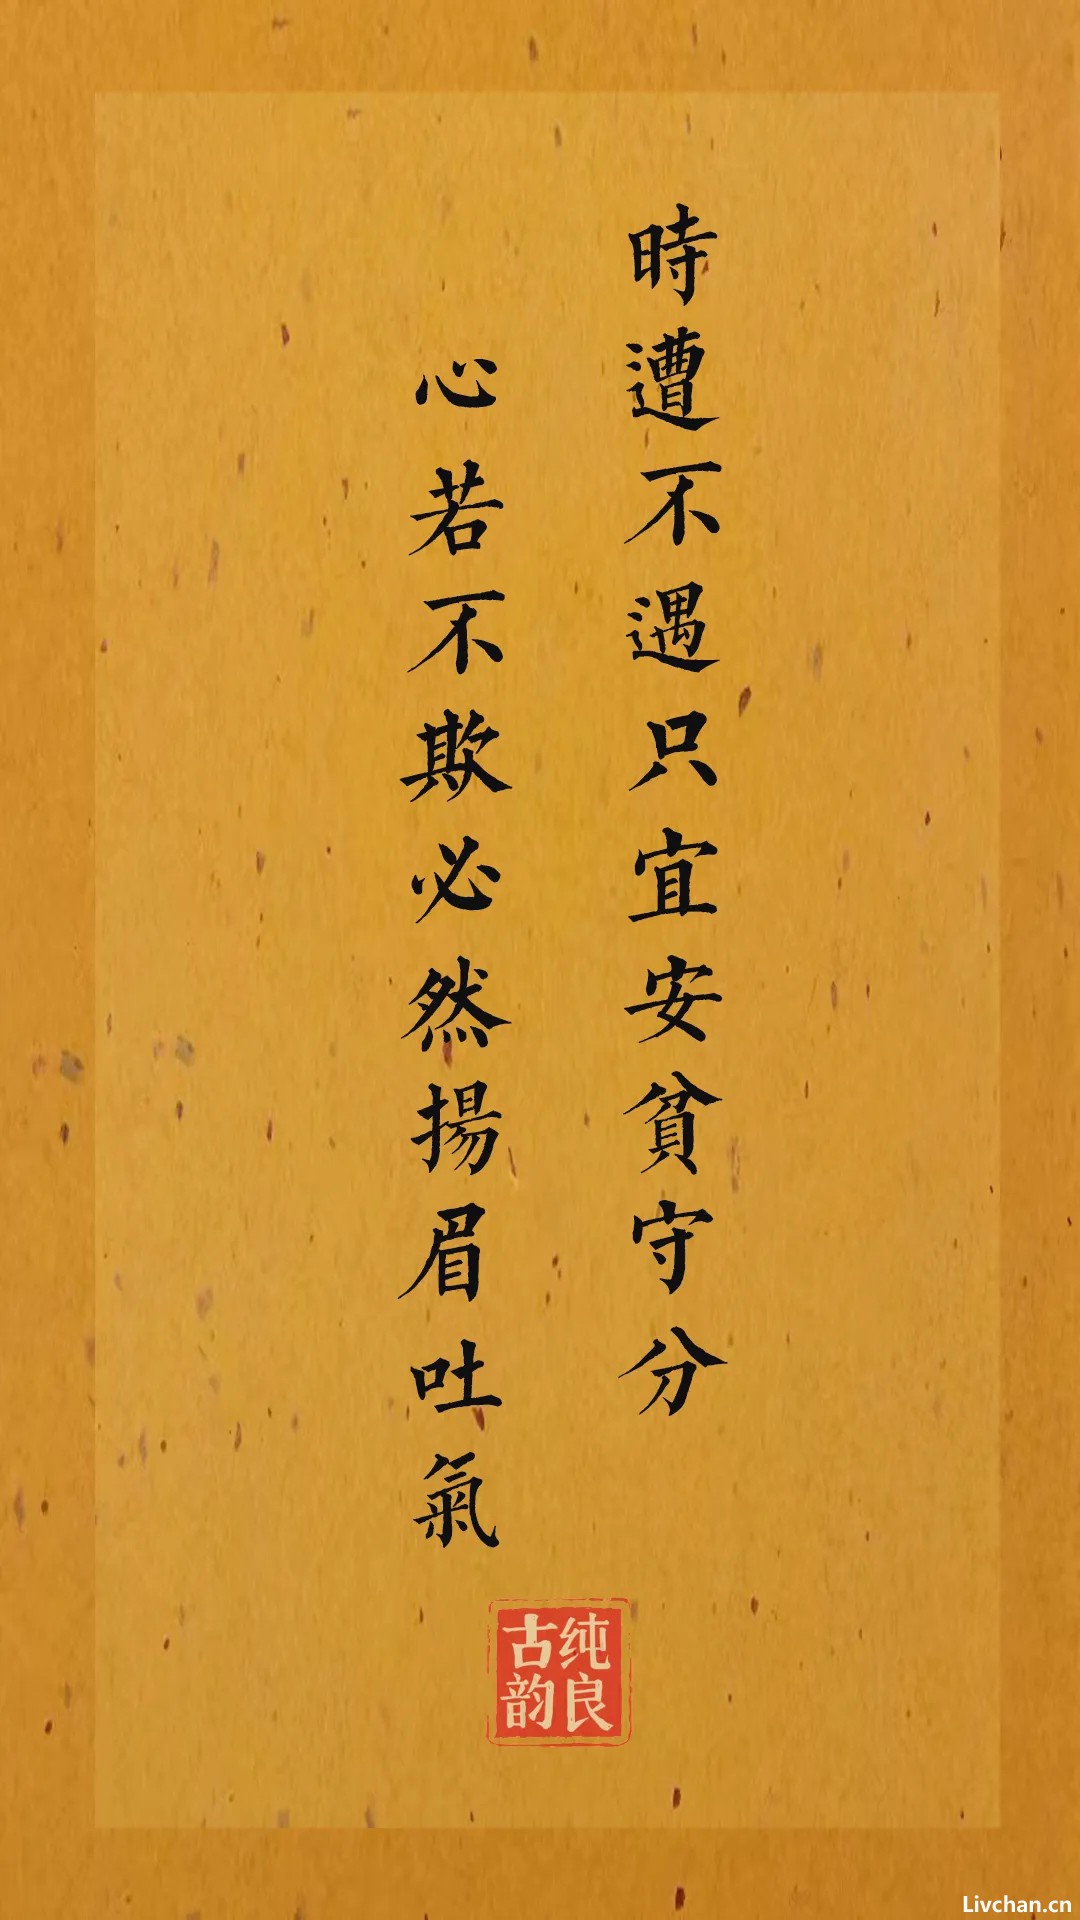 時遭不遇只宜安貧守分
心若不欺必然揚眉吐氣
纯良
古韵
Livchan.cn